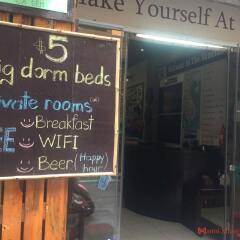 ake Yourself At
$5
ig dorm beds
ivate rooms
EE
Breakfast
WIFI
Beer! (Happy hour)